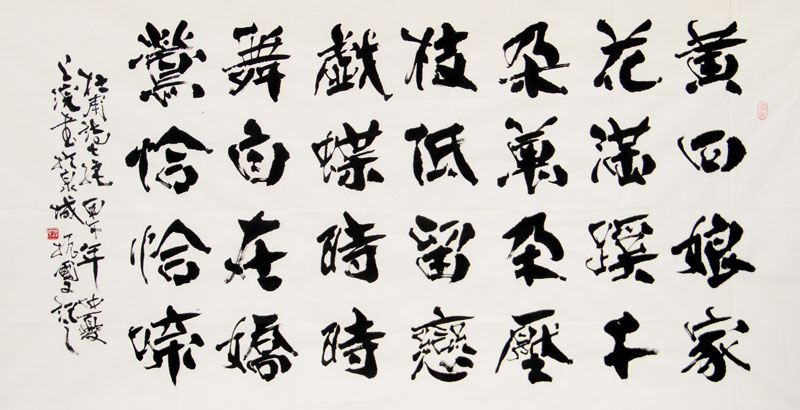 黄四娘家
花滿蹊千
朵萬朵壓
枝低留戀
戯蝶時時
舞自在嬌
鶯恰恰啼
杜甫詩七絕 年仲夏
書於泉城 振國